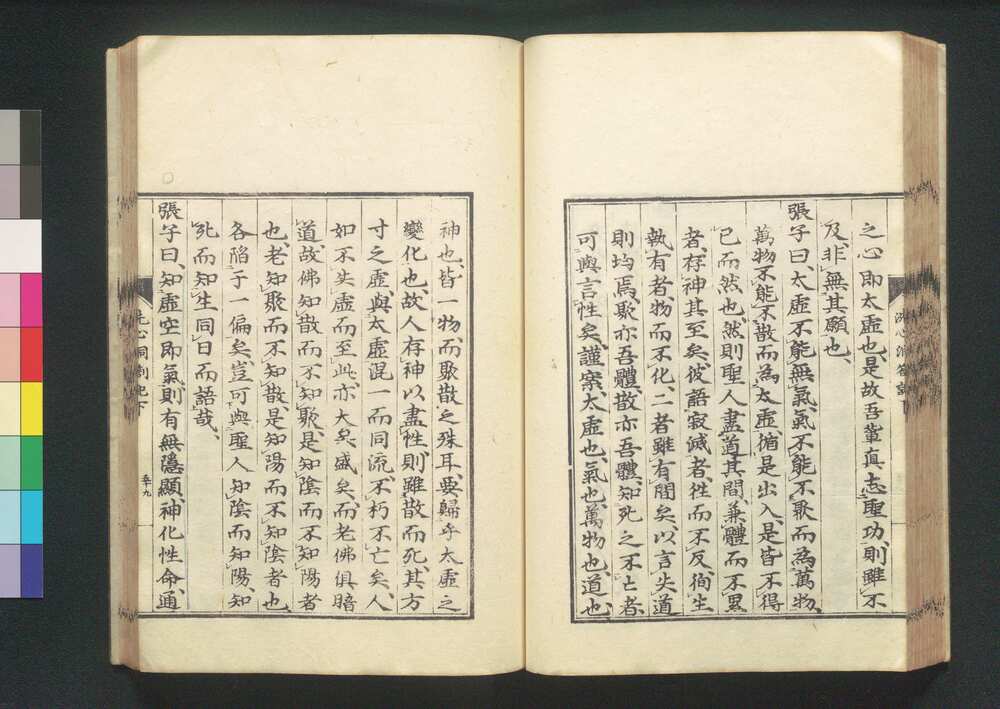 之心即太虛也、是故吾輩真志聖功、則雖不
及、非無其願也、
張子曰、太虛不能無氣、氣不能不聚而為萬物、
萬物不能不散而為太虛、循是出入、是皆不得
已而然也、然則聖人盡道其間、兼體而不累
者、存神其至矣、彼語寂滅者、徃而不反、徇生
執有者、物而不化、二者雖有間矣、以言失道
則均焉、聚亦吾體、散亦吾體、知死之不亡者、
可與言性矣、謹案、太虛也、氣也、萬物也、道也、
神也、皆一物、而聚散之殊耳、要歸乎太虛之
變化也、故人存神以盡性、則雖散而死、其方
寸之虛與太虛混一而同流、不朽不亡矣、人
如不失虛而至此、亦大矣、盛矣、而老佛俱暗
道、故佛知散而不知聚、是知陰而不知陽者
也、老知聚而不知散、是知陽而不知陰者也、
各陷于一偏矣、豈可與聖人知陰而知陽、知
死而知生、同日而語哉、
張子曰、知虛空即氣、則有無隱顯、神化性命、通
洗心洞劄記下